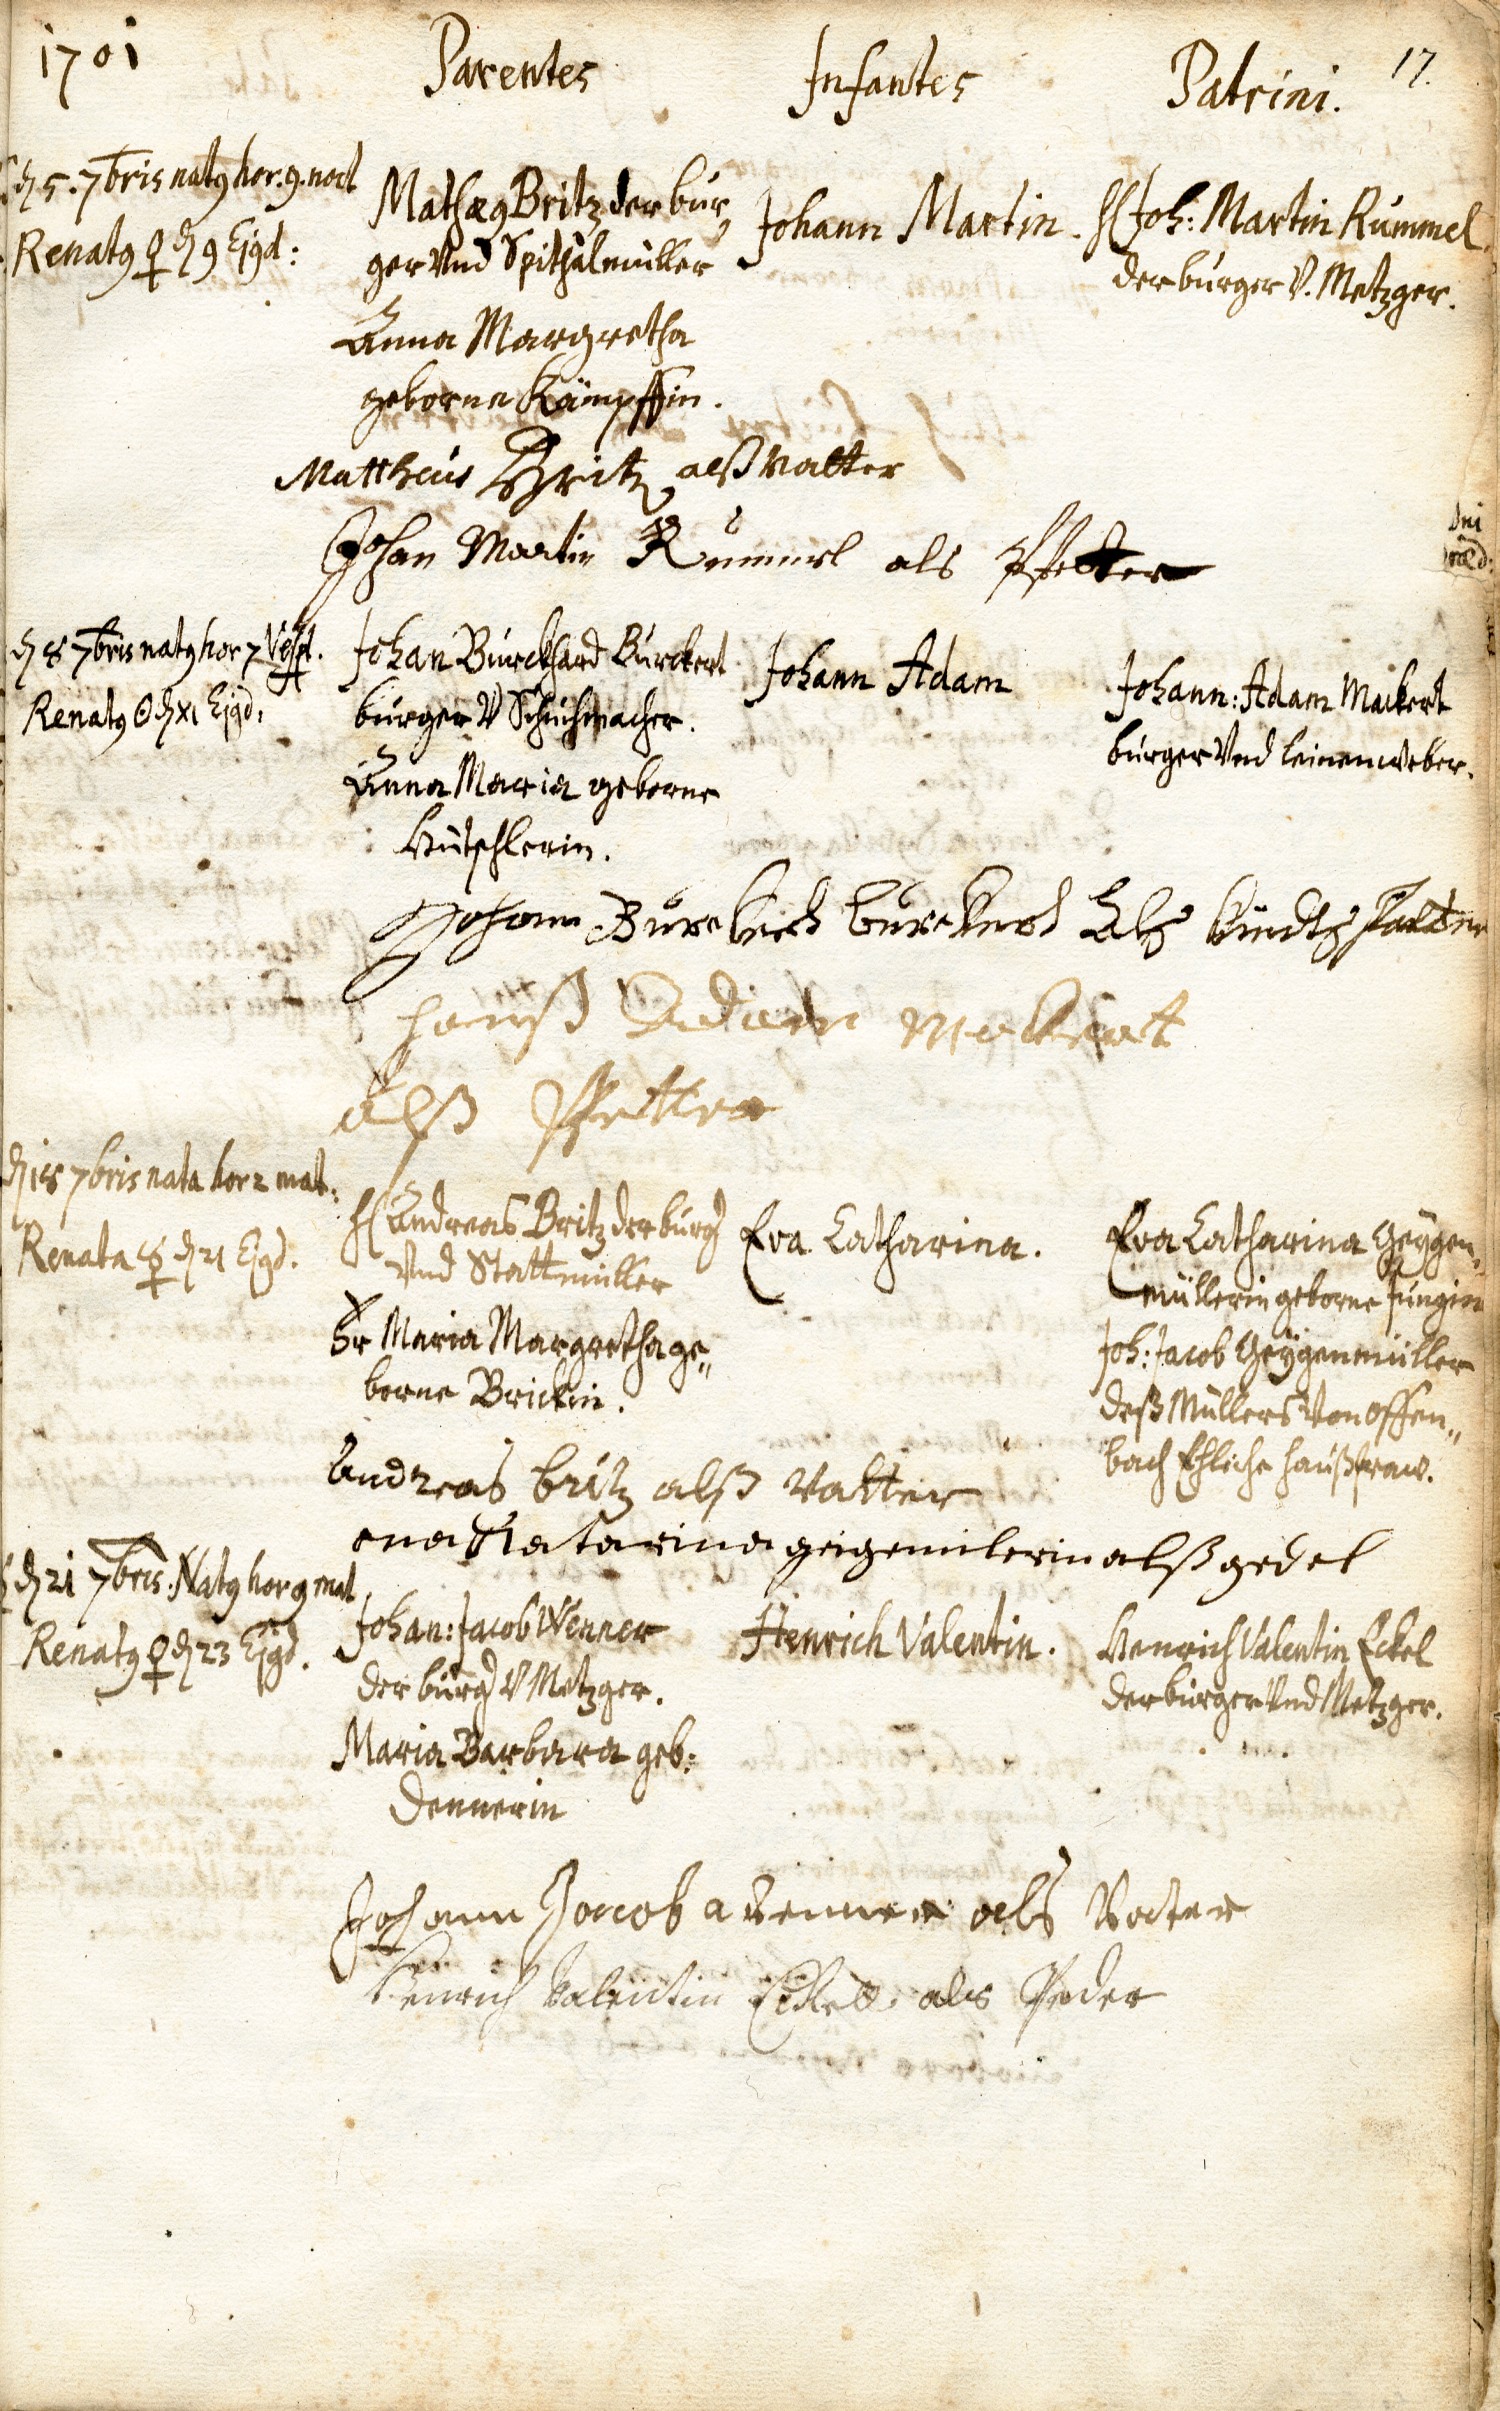 1701 Parentes Infantes Patrini. 17.
d 5. 7bris natꝰ hor. 9. noct
Renatꝰ ♀ d 9 Ejꝰd:
Mathæꝰ Britz der bur„
ger Vnd Spithalmüller
Anna Margretha
geborne Kämpffin.
Johann Martin.
H Joh: Martin Rummel
der burger V. Metzger.
Mattheus Britz alß Vatter
Johan Martin Rummel als Pfetter
d 8 7bris natꝰ hor 7 Vesp.
Renatꝰ ☉ d XI Ejꝰd:
Johan Burckhard Burckert
burger V Schuhmacher.
Anna Maria geborne
Hütschlerin.
Johann Adam
Johann: Adam Mackert
burger Vnd leinenweber.
Johann Burckhard burckerd Alß kindtß Vatter
hanß Adam Mackert
alß Pfetter
d 18 7bris nata hor 2 mat:
Renata ☿ d 21 Ejꝰd.
H Andreas Britz der burg
Vnd Stattmüller
Fr Maria Margretha ge„
borne Brickin.
Eva Catharina.
Eva Catharina Geÿgen„
müllerin geborne Jungin
Joh: Jacob Geÿgenmüller
deß Müllers Von Offen„
bach Ehliche haußfraw.
Andreas britz alß Vatter
eva Katarina geigemilerin alß gedel
d 21 7bris. Natꝰ hor 9 mat
Renatꝰ ♀ d 23 Ejꝰd.
Johan: Jacob Wenner
der burg V Metzger.
Maria Barbara geb:
Dennerin
Henrich Valentin.
Henrich Valentin Eckel
der burger Vnd Metzger.
Johann Jacob Wenner als Vater
Henrich Valentin Eckel als Peder